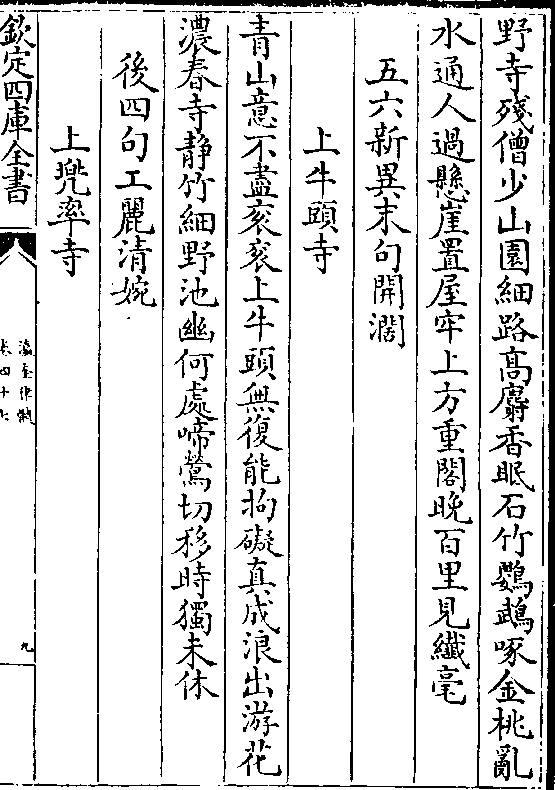 野寺殘僧少山園細路髙麝香眠石竹鸚鵡啄金桃亂
水通人過懸崖置屋牢上方重閣晚百里見纖毫
五六新異末句開濶
上牛頭寺
青山意不盡衮衮上牛頭無復能拘礙真成浪出游花
濃春寺静竹細野池幽何處啼鶯切移時獨未休
後四句工麗清婉
上兜率寺
欽定四庫全書
瀛奎律髓
卷四十七
九